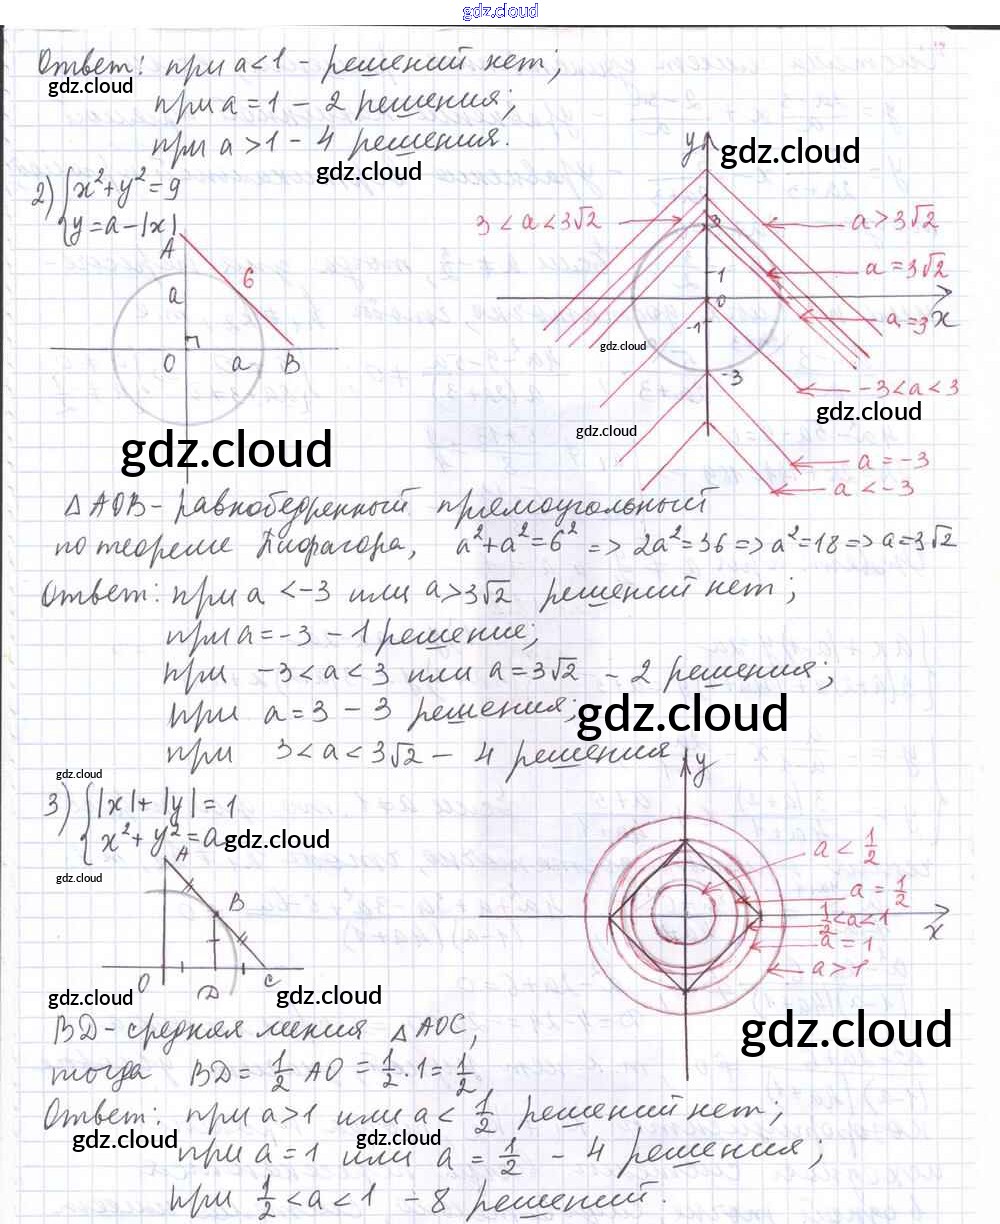 gdz.cloud
Ответ: при a<1 - решений нет;
gdz.cloud
при a = 1 - 2 решения;
при a >1 - 4 решения.
gdz.cloud
2) { x²+y²=9
y = a-|x|
A
6
a
O a B
gdz.cloud
y
gdz.cloud
3 < a < 3√2
3
a > 3√2
1
a = 3√2
0
a = 3
x
-1
gdz.cloud
-3
-3<a<3
gdz.cloud
gdz.cloud
a = -3
a < -3
△AOB - равнобедренный прямоугольный
по теореме Пифагора, a²+a²=6² => 2a²=36 => a²=18 => a=3√2
Ответ: при a <-3 или a>3√2 решений нет;
при a=-3 - 1 решение;
при -3<a<3 или a=3√2 - 2 решения;
при a=3 - 3 решения;
gdz.cloud
при 3<a<3√2 - 4 решения
gdz.cloud
3) { |x|+|y|=1
x²+y²=a
gdz.cloud
gdz.cloud
A
B
O D C
gdz.cloud
gdz.cloud
y
a < 1/2
a = 1/2
1/2<a<1
a = 1
x
a>1
gdz.cloud
BD - средняя линия △AOC,
тогда BD = 1/2 AO = 1/2·1 = 1/2
Ответ: при a>1 или a< 1/2 решений нет;
gdz.cloud
gdz.cloud
при a=1 или a = 1/2 - 4 решения;
при 1/2 <a<1 - 8 решений.